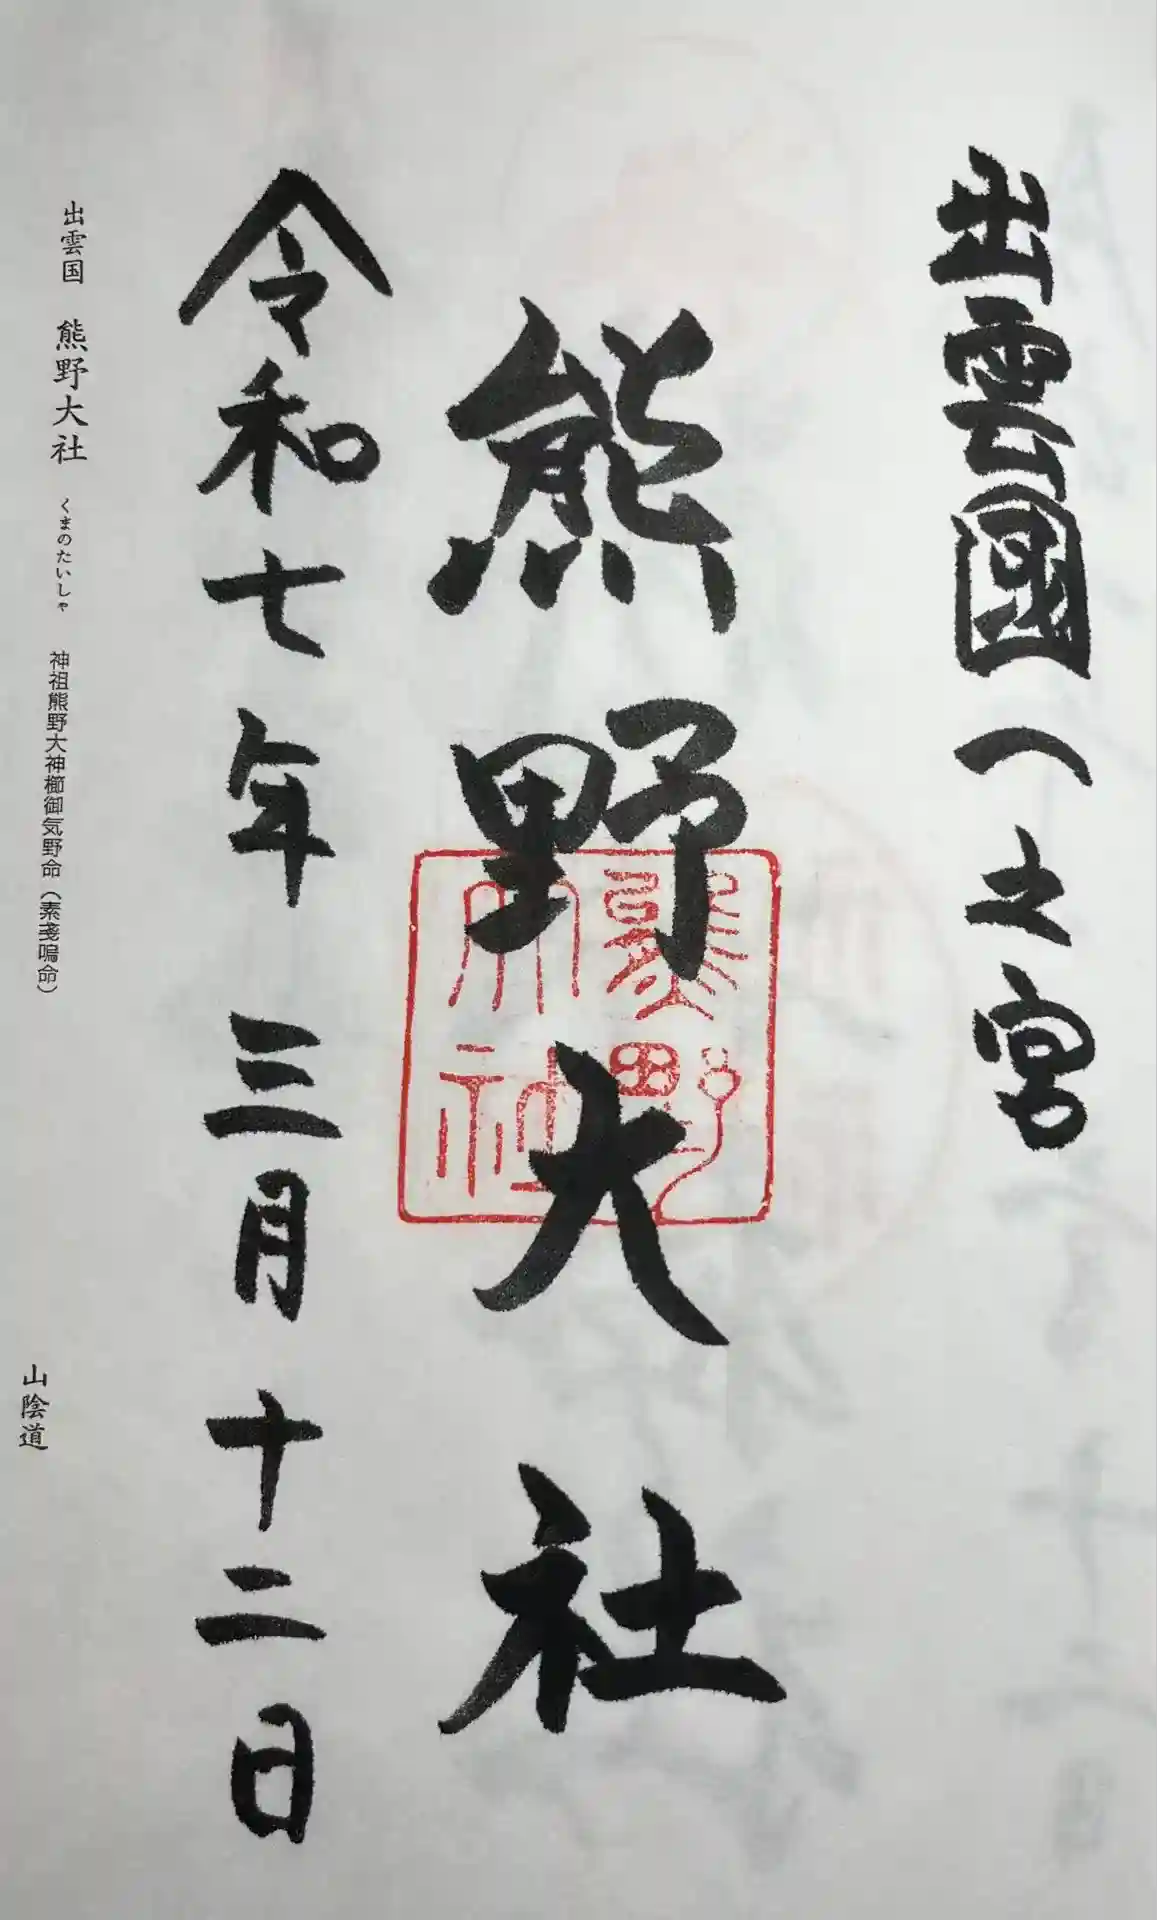 出雲國一之宮
熊野大社
熊野
大社
令和七年 三月 十二日
出雲国 熊野大社 くまのたいしゃ 神祖熊野大神櫛御気野命(素戔嗚命)
山陰道